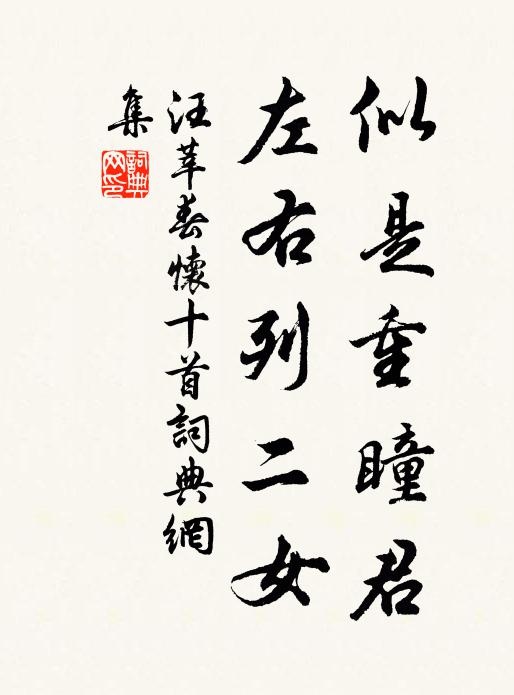 似是重瞳君
左右列二女
汪莘春懷十首詞典網
集
詞典
网印